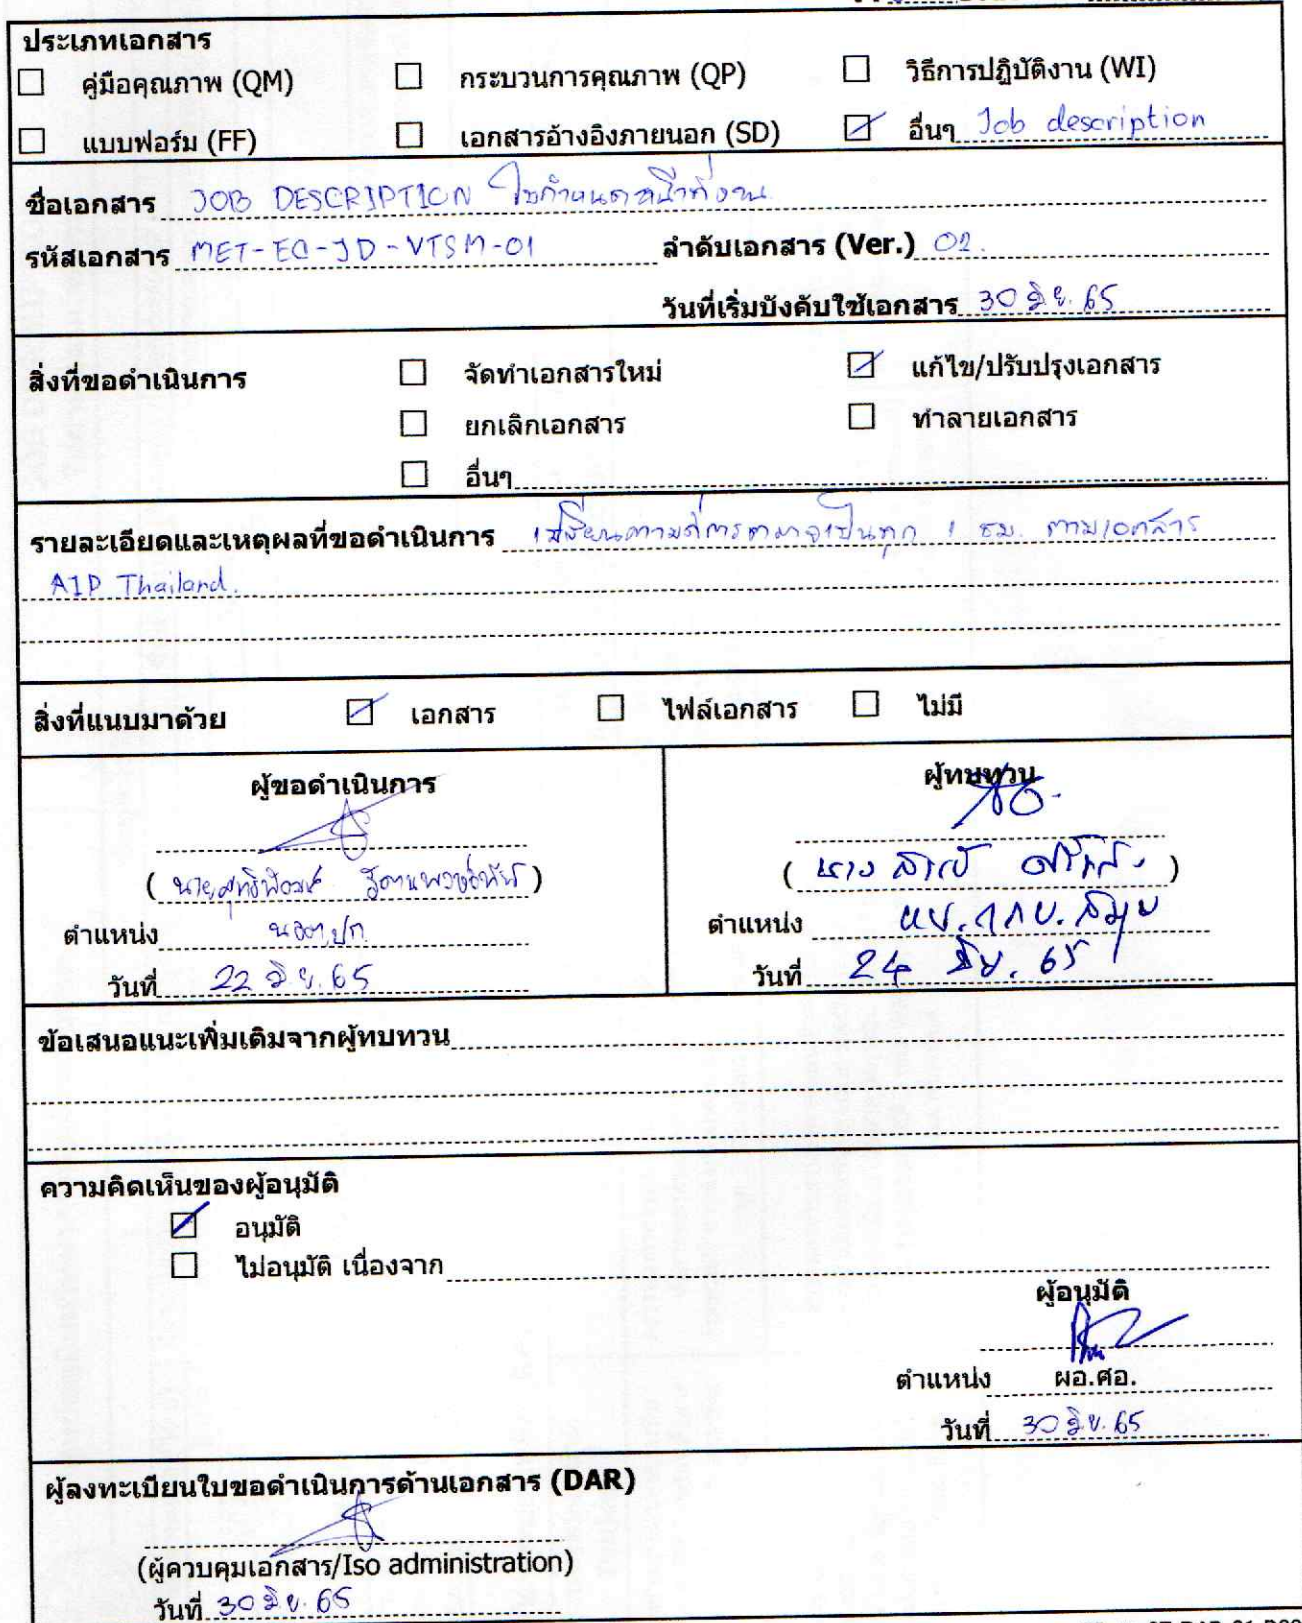 ประเภทเอกสาร
คู่มือคุณภาพ (QM) กระบวนการคุณภาพ (QP) วิธีการปฏิบัติงาน (WI)
แบบฟอร์ม (FF) เอกสารอ้างอิงภายนอก (SD) อื่นๆ Job description
ชื่อเอกสาร JOB DESCRIPTION ใบกำหนดหน้าที่งาน
รหัสเอกสาร MET-EC-JD-VTSM-01 ลำดับเอกสาร (Ver.) 02.
วันที่เริ่มบังคับใช้เอกสาร 30 มิ.ย. 65
สิ่งที่ขอดำเนินการ จัดทำเอกสารใหม่ แก้ไข/ปรับปรุงเอกสาร
ยกเลิกเอกสาร ทำลายเอกสาร
อื่นๆ
รายละเอียดและเหตุผลที่ขอดำเนินการ เป็นทุก 1 ชม. ตามเอกสาร
AIP Thailand.
สิ่งที่แนบมาด้วย เอกสาร ไฟล์เอกสาร ไม่มี
ผู้ขอดำเนินการ ผู้ทบทวน
(นาย) (นาง)
ตำแหน่ง ตำแหน่ง
วันที่ 22 มิ.ย. 65 วันที่ 24 มิย. 65
ข้อเสนอแนะเพิ่มเติมจากผู้ทบทวน
ความคิดเห็นของผู้อนุมัติ
อนุมัติ
ไม่อนุมัติ เนื่องจาก
ผู้อนุมัติ
ตำแหน่ง ผอ.ศอ.
วันที่ 30 มิ.ย. 65
ผู้ลงทะเบียนใบขอดำเนินการด้านเอกสาร (DAR)
(ผู้ควบคุมเอกสาร/Iso administration)
วันที่ 30 มิ.ย. 65